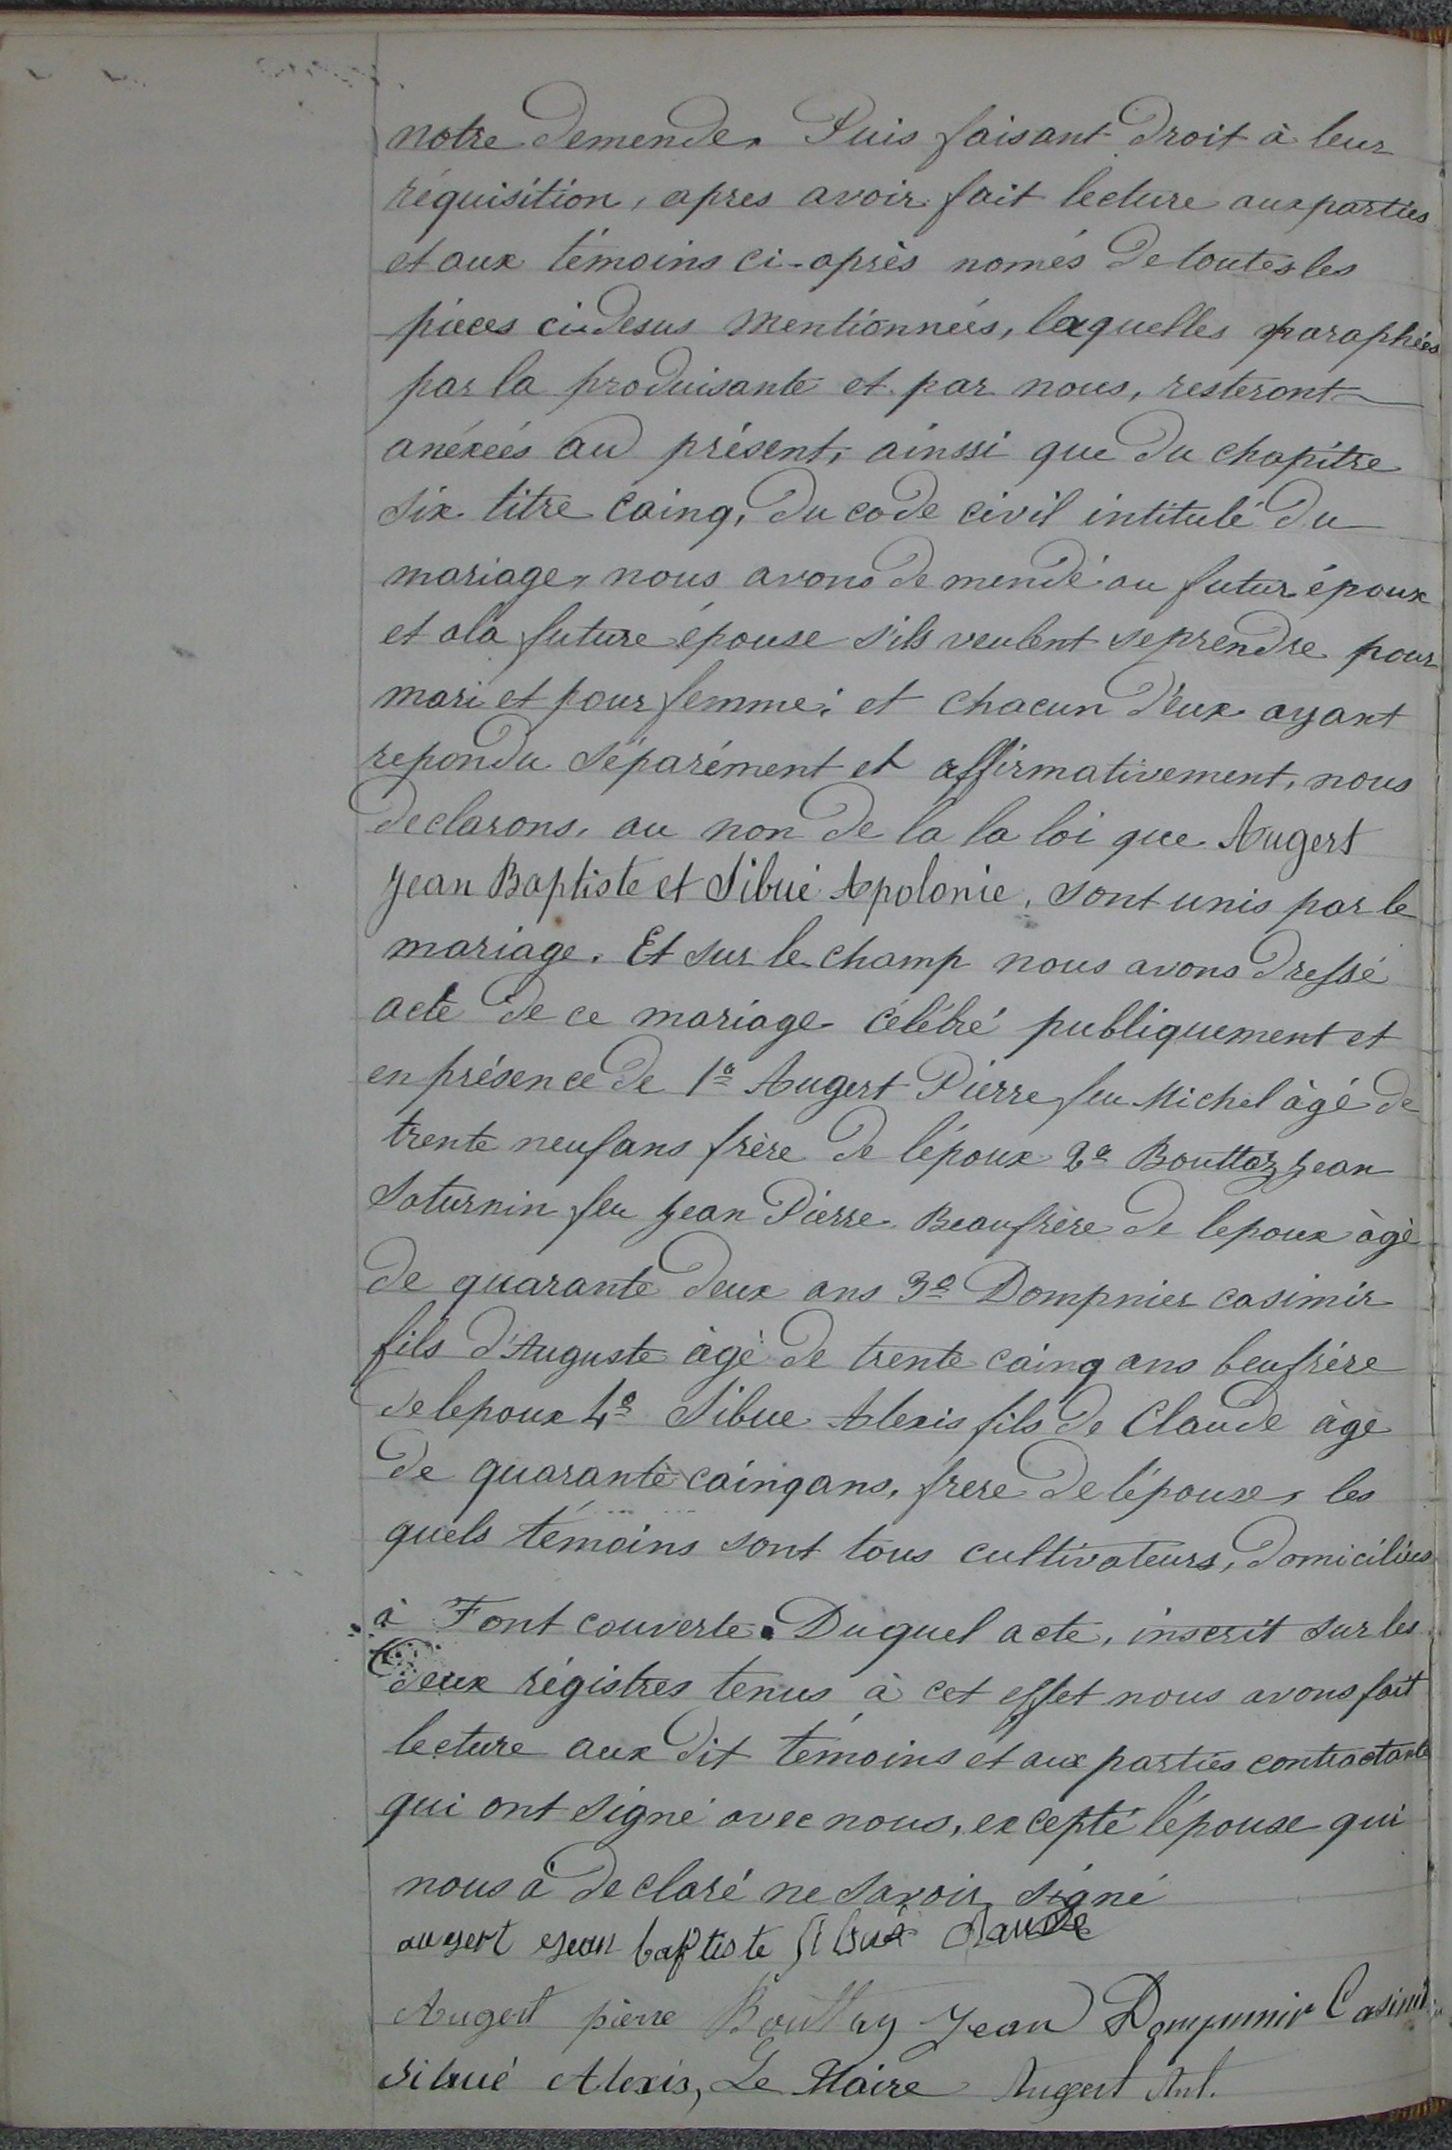 notre demende. Puis faisant droit à leur
réquisition, apres avoir fait lecture aux parties
et aux témoins ci-après només de toutes les
pièces ci-desus mentionnées, lequelles paraphées
par la produisante et par nous, resteront
anéxées au présent, ainssi que du chapitre
six titre cainq, du code civil intitulé du
mariage, nous avons demendé au futur époux
et ala future épouse s'ils veulent seprendre pour
mari et pour femme; et chacun d'eux ayant
repondu séparément et affirmativement, nous
declarons, au non de la la loi que Augert
Jean Baptiste et Sibué Apolonie, sont unis par le
mariage. Et sur le champ nous avons dressé
acte de ce mariage célébré publiquement et
en présence de 1º Augert Pierre feu Michel àgé de
trente neuf ans frère de l'époux 2º Bouttaz Jean
Saturnin feu Jean Pierre Beaufrère de lepoux àgè
de quarante deux ans 3º Dompnier casimir
fils d'Auguste àgè de trente cainq ans beufrére
de lepoux 4º Sibue Alexis fils de Claude àgè
de quarante cainqans, frere de l'épouse, les
quels témoins sont tous cultivateurs, domiciliés
à Font couverte. Duquel acte, inscrit sur les
deux régistres tenus à cet effet nous avons fait
lecture aux dit témoins et aux parties contractante
qui ont signé avec nous, excepté l'épouse qui
nous à declaré ne savoir signé
augert jean baptiste Sibué claude
Augert pierre Bouttaz Jean Dompnier Casimir
sibué Alexis, Le Maire Augert Ant.